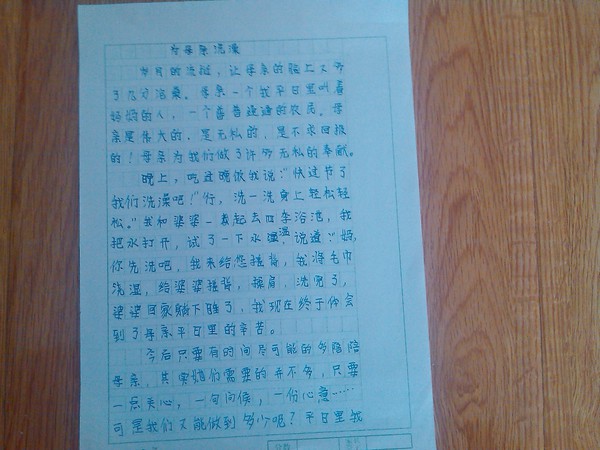 为母亲洗澡
岁月的流逝，让母亲的脸上又多
了几分沧桑。母亲一个我平日里叫着
妈妈的人，一个普普通通的农民。母
亲是伟大的，是无私的，是不求回报
的！母亲为我们做了许多无私的奉献。
晚上，吃过晚饭我说：“快过节了
我们洗澡吧！”行，洗一洗身上轻松轻
松。”我和婆婆一起去四季浴池，我
把水打开，试了一下水温，说道：“妈，
你先洗吧，我来给您搓背，我将毛巾
洗湿，给婆婆搓背，揉肩，洗完了，
婆婆回家躺下睡了，我现在终于体会
到了母亲平日里的辛苦。
今后只要有时间尽可能的多陪陪
母亲，其实她们需要的并不多，只要
一点关心，一句问候，一份心意……
可是我们又能做到多少呢？平日里我